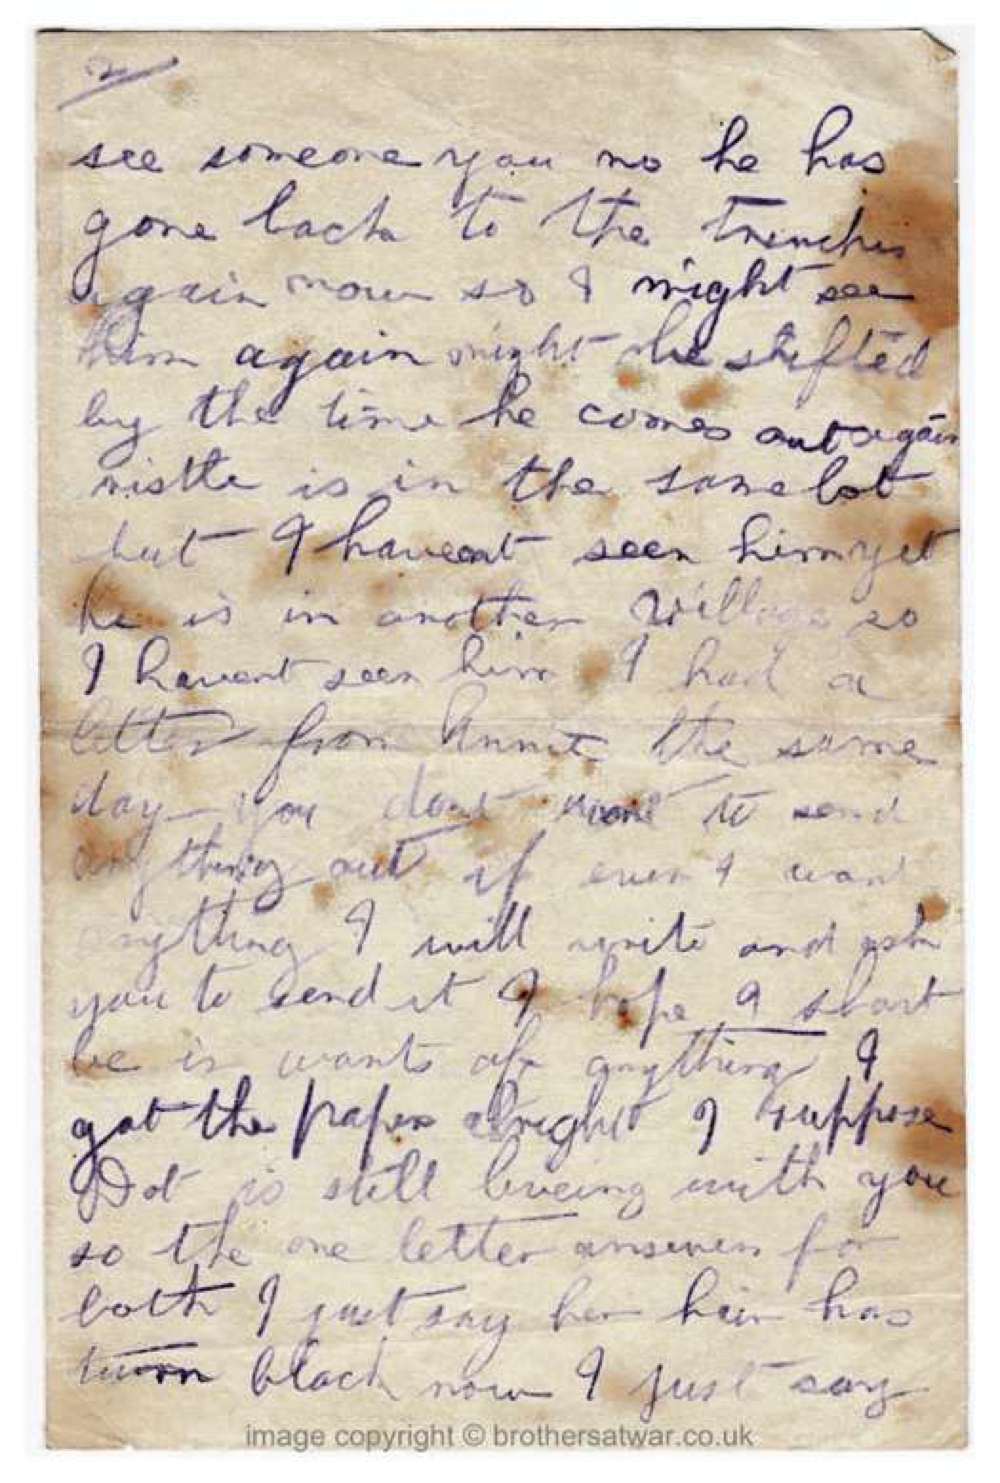 2
see someone you no he has
gone back to the trenches
again now so I might see
him again might be shifted
by the time he comes out again
is in the same lot
but I haveent seen him yet
he is in another village so
I havent seen him I had a
letter from Annie the same
day you dont want to send
anything out if ever I want
anything I will write and ask
you to send it I hope I shant
be in wants of anything I
got the paper alright I suppose
Dot is still liveing with you
so the one letter answers for
both I just say her hair has
turn black now I just say
image copyright © brothersatwar.co.uk